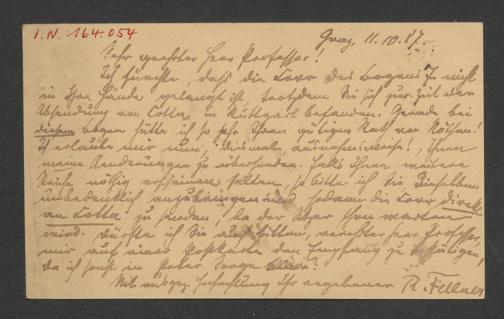 I.N. 164.054
Graz, 11.10.87.
Sehr geehrter Herr Professor!
Ich fürchte, daß die Corr des Bogens 7 nicht
in Ihre Hände gelangt ist, trotzdem Sie sich zur Zeit der
Absendung von Cotta in Stuttgart befanden. Gerade bei
diesem Bogen hätte ich so sehr Ihren gütigen Rath von Nöthen!
Ich erlaube mir nun, diesmal ausnahmsweise!, Ihnen
meine Aenderungen zu übersenden. Falls Ihnen weitere
nöthig erscheinen sollten, so bitte ich Sie dieselben
unbedenklich und sodann die Corr direkt
an Cotta zu senden! da der schon warten
wird. Dürfte ich Sie auch bitten, verehrter Herr Professor,
mir auf einer Postkarte den Empfang zu bestätigen,
da ich sonst in steter Sorge
Mit ausgez. Hochachtung Ihr ergebener R. Fellner